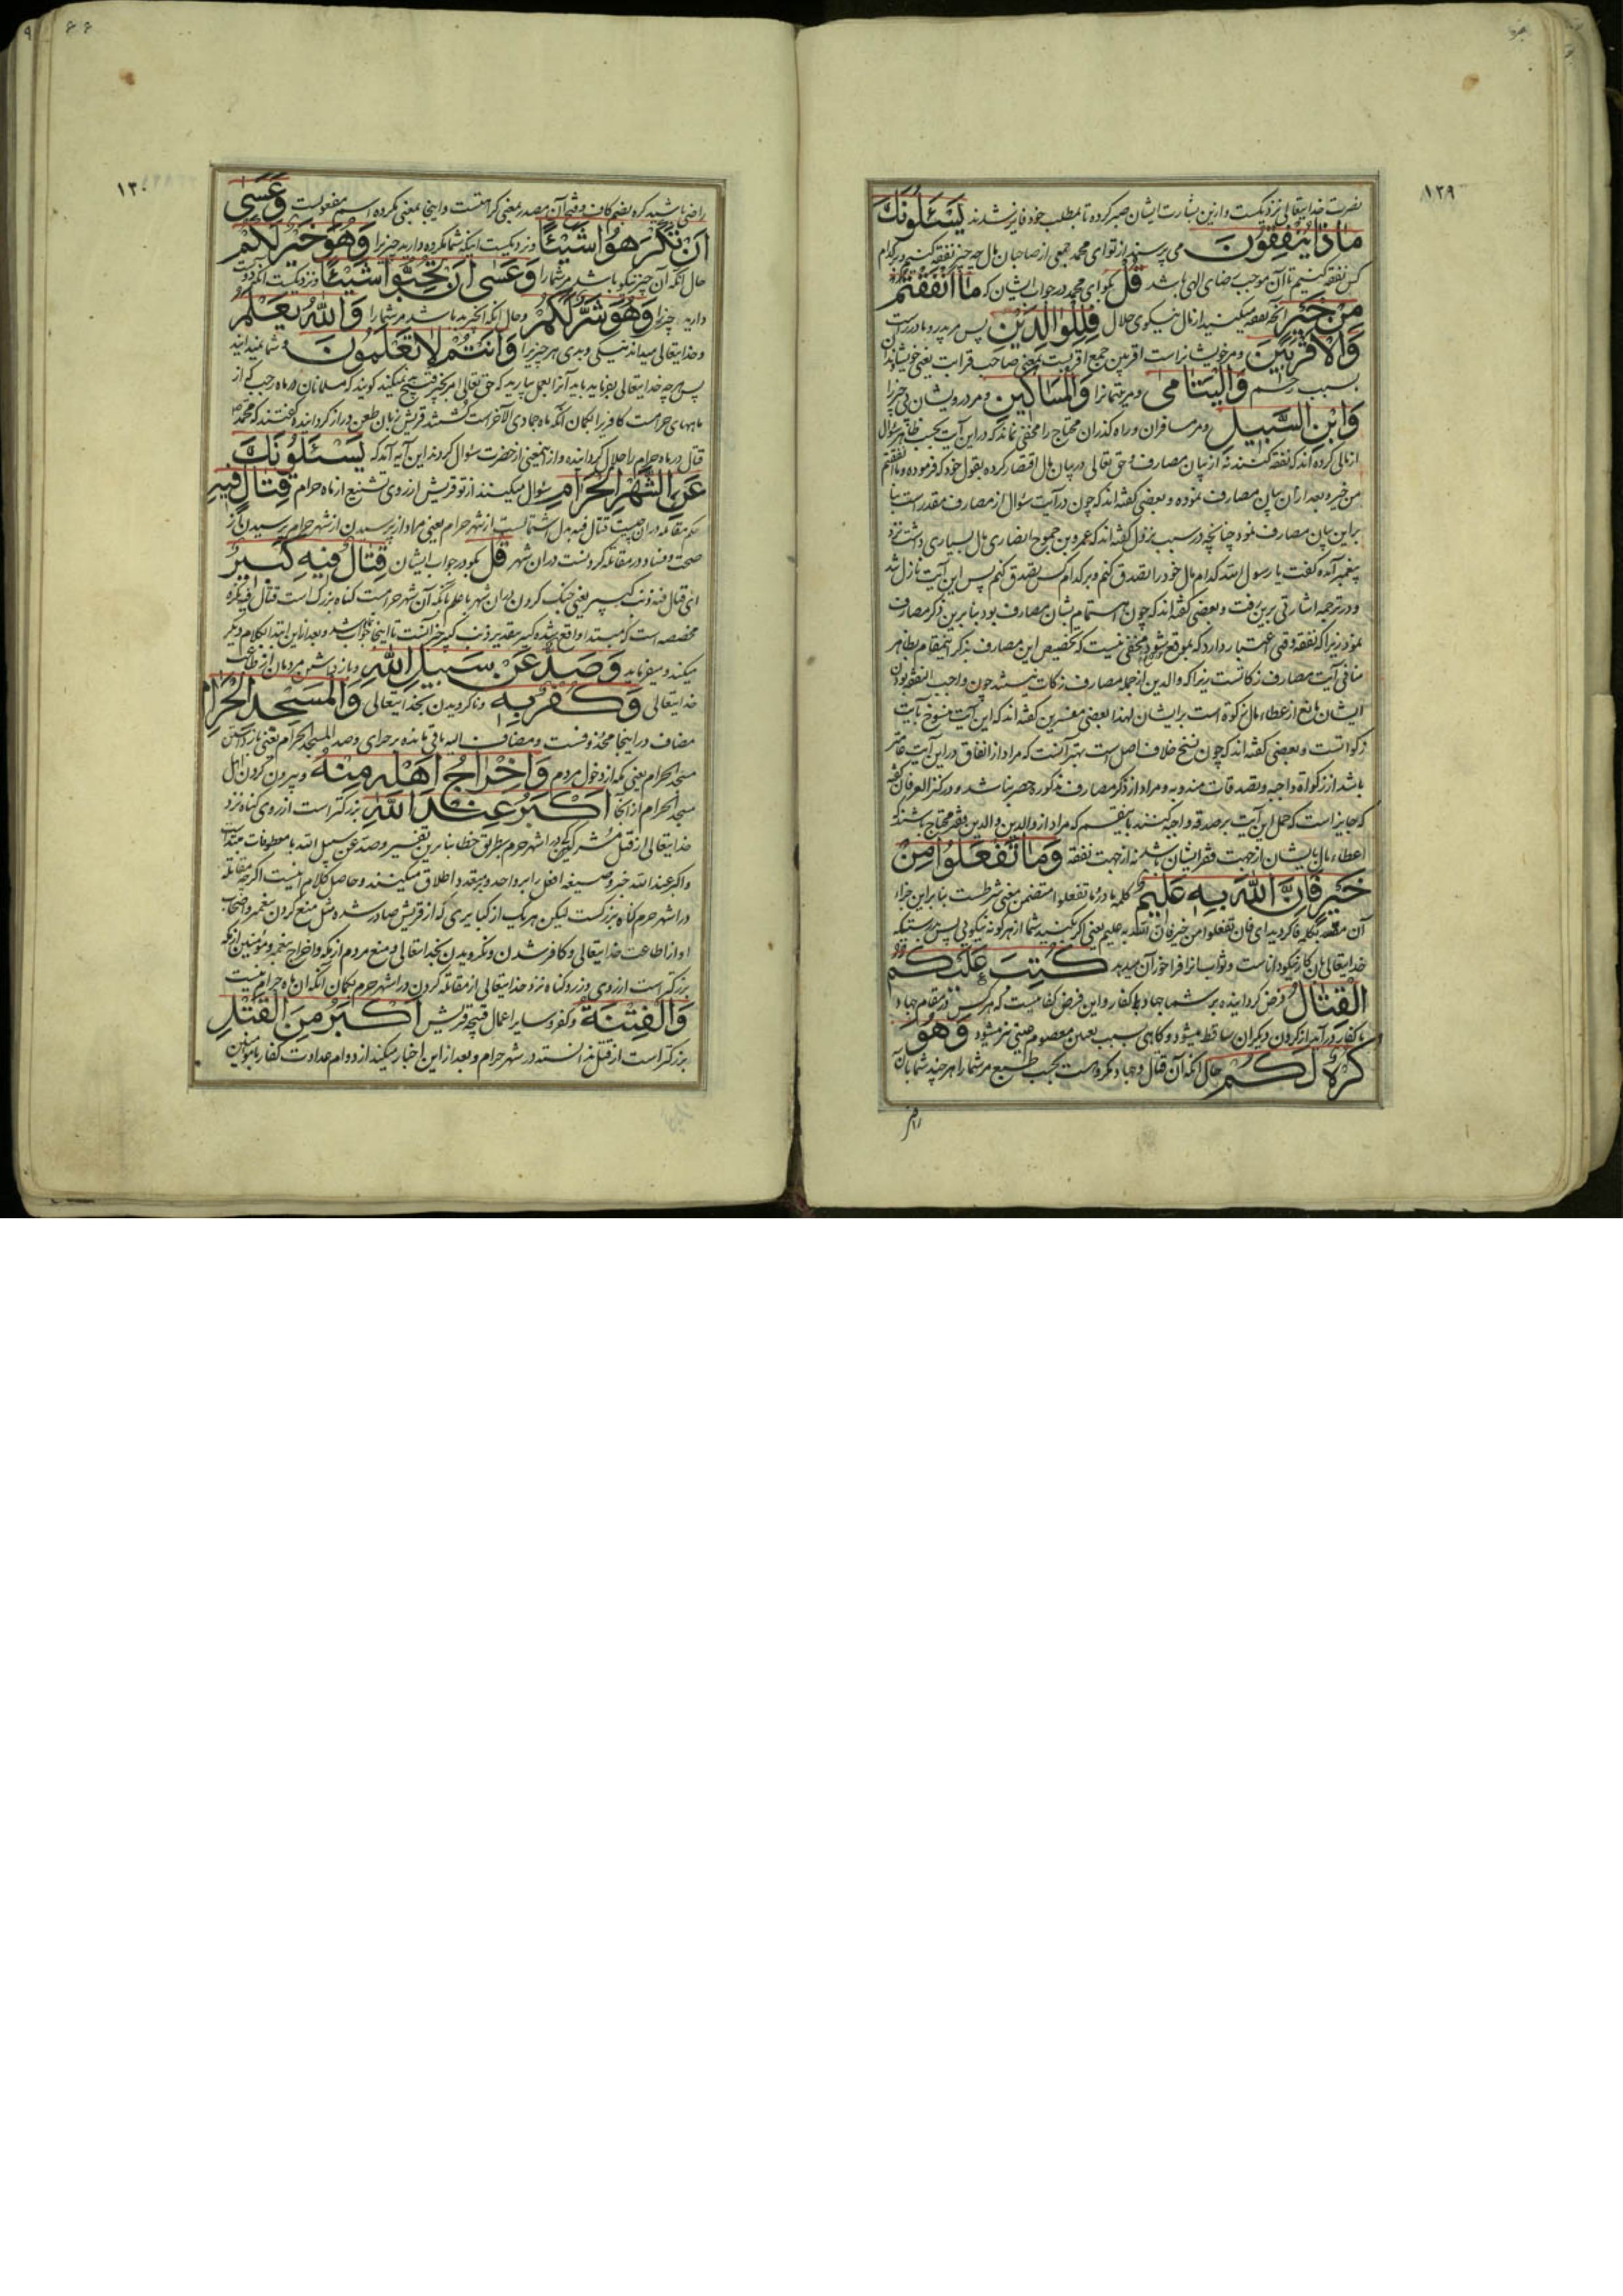 ۱۲۹
نصرت خدایتعالی نزدیکست و ازین بشارت ایشان صبر کرده تا بمطلب خود فایز شدند یَسْئَلُونَكَ
مَاذَا یُنْفِقُونَ می پرسند از تو ای محمد جمعی از صاحبان مال چه چیز نفقه کنیم و بر کدام
کس نفقه کنیم تا آن موجب رضای الهی باشد قُلْ بگو ای محمد در جواب ایشان که مَا اَنْفَقْتُمْ
مِنْ خَیْرٍ آنچه نفقه میکنید از مال نیکوی حلال فَلِلْوَالِدَیْنِ پس مر پدر و مادر راست
وَالْاَقْرَبِینَ و مر خویشانراست اقربین جمع اقربست بمعنی صاحب قرابت یعنی خویشاوندان
بسبب رحم وَالْیَتَامَی و مر یتیمانرا وَالْمَسَاکِینِ و مر درویشان بی چیز را
وَابْنِ السَّبِیلِ و مر مسافران و راه گذران محتاج را مخفی نماند که در این آیت بحسب ظاهر سؤال
از مالی کرده اند که نفقه کنند نه از بیان مصارف و حق تعالی در بیان مال اقتصار کرده بقول خود که فرموده و ما انفقتم
من خیر و بعد از آن بیان مصارف نموده و بعضی گفته اند که چون در آیت سؤال از مصارف مقدر است بنا
براین بیان مصارف نمود چنانچه در سبب نزول گفته اند که عمرو بن جموح انصاری مال بسیاری داشت نزد
پیغمبر آمده گفت یا رسول الله کدام مال خود را تصدق کنم و بر کدام کس تصدق کنم پس این آیت نازل شد
و در ترجمه اشارتی برین رفت و بعضی گفته اند که چون اهتمام بشان مصارف بود بنابرین ذکر مصارف
نمود زیرا که نفقه وقتی اعتبار دارد که بموقع شود و مخفی نیست که تخصیص این مصارف بذکر اینمقام بظاهر
منافی آیت مصارف زکاتست زیرا که والدین از جمله مصارف زکات نیستند چون واجب النفقه بودن
ایشان مانع از عطاء مال زکوة است بر ایشان لهذا بعضی مفسرین گفته اند که این آیت منسوخ بآیت
زکواتست و بعضی گفته اند که چون نسخ خلاف اصل است بهتر آنست که مراد از انفاق در این آیت عامتر
باشد از زکواة واجبه و تصدقات مندوبه و مراد از ذکر مصارف مذکوره حصر نباشد و در کنز العرفان گفته
که جایز است که حمل این آیت بر صدقه واجبه کنند باینقسم که مراد از والدین والدین فقیر محتاج باشند که
اعطاء مال بایشان از جهت فقر ایشان باشد نه از جهت نفقه وَمَا تَفْعَلُوا مِنْ
خَیْرٍ فَاِنَّ اللّٰهَ بِهِ عَلِیمٌ کلمه ما در و ما تفعلوا متضمن معنی شرطست بنابراین جزاء
آن بکلمه فا کردید ای فان تفعلوا من خیر فان الله به علیم یعنی اگر بکنید شما از هر گونه نیکویی پس بدرستیکه
خدایتعالی بان کار نیکو داناست و ثواب از افراخور آن میدهد کُتِبَ عَلَیْکُمُ
الْقِتَالُ فرض گردانیده بر شما جهاد با کفار و این فرض کفائیست که هر کس در مقام جهاد
با کفار درآید از گردن دیگران ساقط میشود و گاهی بسبب تعین معصوم عینی نیز میشود وَهُوَ
کُرْهٌ لَکُمْ حال آنکه آن قتال و جهاد مکروهست بحسب طبع مر شما را هر چند شما بآن
راضی
۱۳۰
راضی باشید کره بضم کاف و فتح آن مصدر بمعنی کراهتست و اینجا بمعنی مکروه اسم مفعولست وَعَسٰی
اَنْ تَکْرَهُوا شَیْئًا و نزدیکست اینکه شما مکروه دارید چیز را وَهُوَ خَیْرٌ لَکُمْ
حال آنکه آن چیز نیکو باشد مر شما را وَعَسٰی اَنْ تُحِبُّوا شَیْئًا و نزدیکست آنکه دوست
دارید چیز را وَهُوَ شَرٌّ لَکُمْ و حال آنکه آنچیز بد باشد مر شما را وَاللّٰهُ یَعْلَمُ
و خدایتعالی میداند نیکی و بدی هر چیز را وَاَنْتُمْ لَا تَعْلَمُونَ و شما نمیدانید
پس هر چه خدایتعالی بفرماید باید آنرا بعمل بیارید که حق تعالی امر بچیز قبیح نمیکند گویند که مسلمانان در ماه رجب که از
ماههای حرامست کافریرا بگمان آنکه ماه جمادی الآخر است کشتند قریش زبان طعن دراز گردانیده گفتند که محمد
قتال در ماه حرام را حلال گردانیده و از اینمعنی از حضرت سؤال کردند این آیه آمد که یَسْئَلُونَكَ
عَنِ الشَّهْرِ الْحَرَامِ سؤال میکنند از تو قریش از روی تشنیع از ماه حرام قِتَالٍ فِیهِ
حکم مقاتله در آن چیست قتال فیه بدل اشتمالست از شهر حرام یعنی مراد از پرسیدن از شهر حرام پرسیدن از
صحت و فساد و در مقاتله کردنست در ان شهر قُلْ بگو در جواب ایشان قِتَالٌ فِیهِ کَبِیرٌ
ای قتال فیه ذنب کبیر یعنی جنگ کردن در ان شهر با علم بآنکه آن شهر حرامست گناه بزرگ است قتال فیه نکره
مخصصه است که مبتدا واقع شده کبیر بتقدیر ذنب کبیر خبر آنست تا اینجا جواب شد و بعد از این ابتدا بکلام دیگر
میکند و میفرماید وَصَدٌّ عَنْ سَبِیلِ اللّٰهِ و باز داشتن مردمان از طاعت
خدایتعالی وَکُفْرٌ بِهِ و ناگرویدن بخدایتعالی وَالْمَسْجِدِ الْحَرَامِ
مضاف در اینجا محذوفست و مضاف الیه باقی مانده بر جرای و صد المسجد الحرام یعنی باز داشتن
مسجد الحرام یعنی مکه از دخول مردم وَاِخْرَاجُ اَهْلِهِ مِنْهُ و بیرون کردن اهل
مسجد الحرام از آنجا اَکْبَرُ عِنْدَ اللّٰهِ بزرگتر است از روی گناه نزد
خدایتعالی از قتل مشرکین در اشهر حرم بطریق خطا بنابرین تفسیر و صد عن سبیل الله با معطوفات مبتداست
و اکبر عند الله خبر و صیغه افعل را بر واحد و متعدد اطلاق میکنند و حاصل کلام اینست اگر چه مقاتله
در اشهر حرم گناه بزرگست لیکن هر یک از کبایری که از قریش صادر شده مثل منع کردن پیغمبر و اصحاب
او از اطاعت خدایتعالی و کافر شدن و نگرویدن بخدایتعالی و منع مردم از مکه و اخراج پیغمبر و مؤمنین از مکه
بزرگتر است از روی وزر و گناه نزد خدایتعالی از مقاتله کردن در اشهر حرم بگمان آنکه آن ماه حرام نیست
وَالْفِتْنَةُ و کفر و سایر اعمال قبیحه قریش اَکْبَرُ مِنَ الْقَتْلِ
بزرگتر است از قتل ندانسته در شهر حرام و بعد از این اخبار میکند از دوام عداوت کفار با مؤمنین